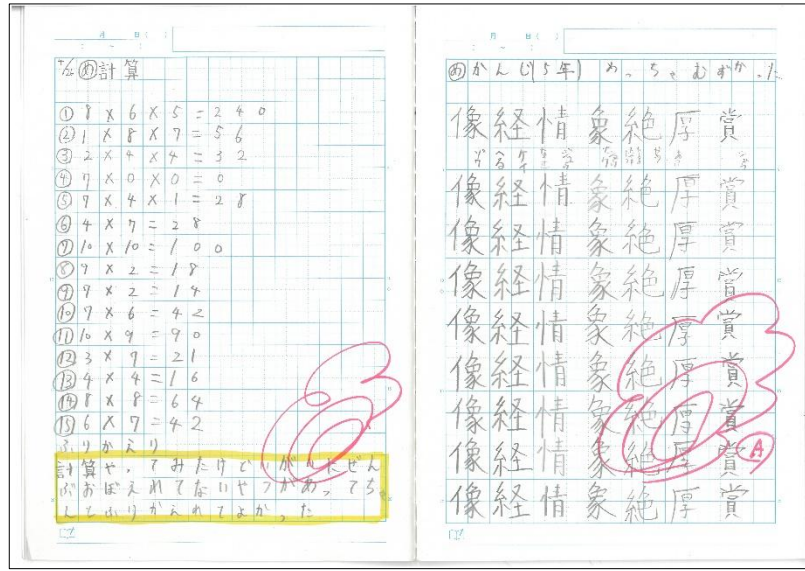 月 日( )
め 計算
① 8×6×5=240
② 1×8×7=56
③ 2×4×4=32
④ 7×0×0=0
⑤ 7×4×1=28
⑥ 4×7=28
⑦ 10×10=100
⑧ 9×2=18
⑨ 7×2=14
⑩ 7×6=42
⑪ 10×9=90
⑫ 3×7=21
⑬ 4×4=16
⑭ 8×8=64
⑮ 6×7=42
ふりかえり
計算やってみたけどいがいにぜん
ぶおぼえれてないやつがあってち
ふりかえれてよかった
月 日( )
め かんじ(5年) めっちゃむずかった
像経情象絶厚賞
像経情象絶厚賞
像経情象絶厚賞
像経情象絶厚賞
像経情象絶厚賞
像経情象絶厚賞
像経情象絶厚賞
像経情象絶厚賞
A
像経情象絶厚賞